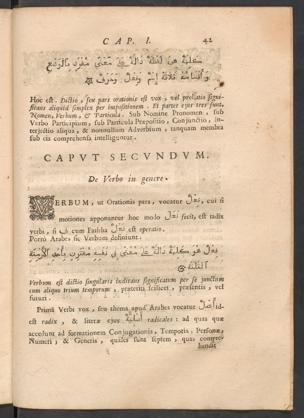 CAP. I. 42
كلمة هي لفظة دالة على معنى مفرد بالوضع
وأقسامها ثلاثة إسم وفعل وحرف
Hoc est. Dictio, seu pars orationis est vox, vel prolatio signi-
ficans aliquid simplex per impositionem. Et partes ejus tres sunt,
Nomen, Verbum, & Particula. Sub Nomine Pronomen, sub
Verbo Participium, sub Particula Præpositio, Conjunctio, in-
terjectio aliqua, & nonnullum Adverbium, tanquam membra
sub eis comprehensa intelliguntur.
CAPUT SECUNDUM.
De Verbo in genere.
VERBUM, ut Orationis pars, vocatur فعل, cui si
motiones apponantur hoc modo فعل fecit, est radix
verbi, si ف cum Fathha فعل est operatio.
Porro Arabes sic Verbum definiunt:
فعل هو كلمة دالة على معنى في نفسه مقترن بأحد الأزمنة
الثلثة
Verbum est dictio singularis indicans significatum per se junctum
cum aliquo trium temporum, præterito scilicet, præsenti, vel
futuri.
Prima Verbi vox, seu thema apud Arabes vocatur أصل id-
est radix, & literæ ejus أصلية radicales: ad quas quæ
accedunt ad formationem Conjugationis, Temporis, Personæ,
Numeri, & Generis, quales sunt septem, quas compre-
hendit